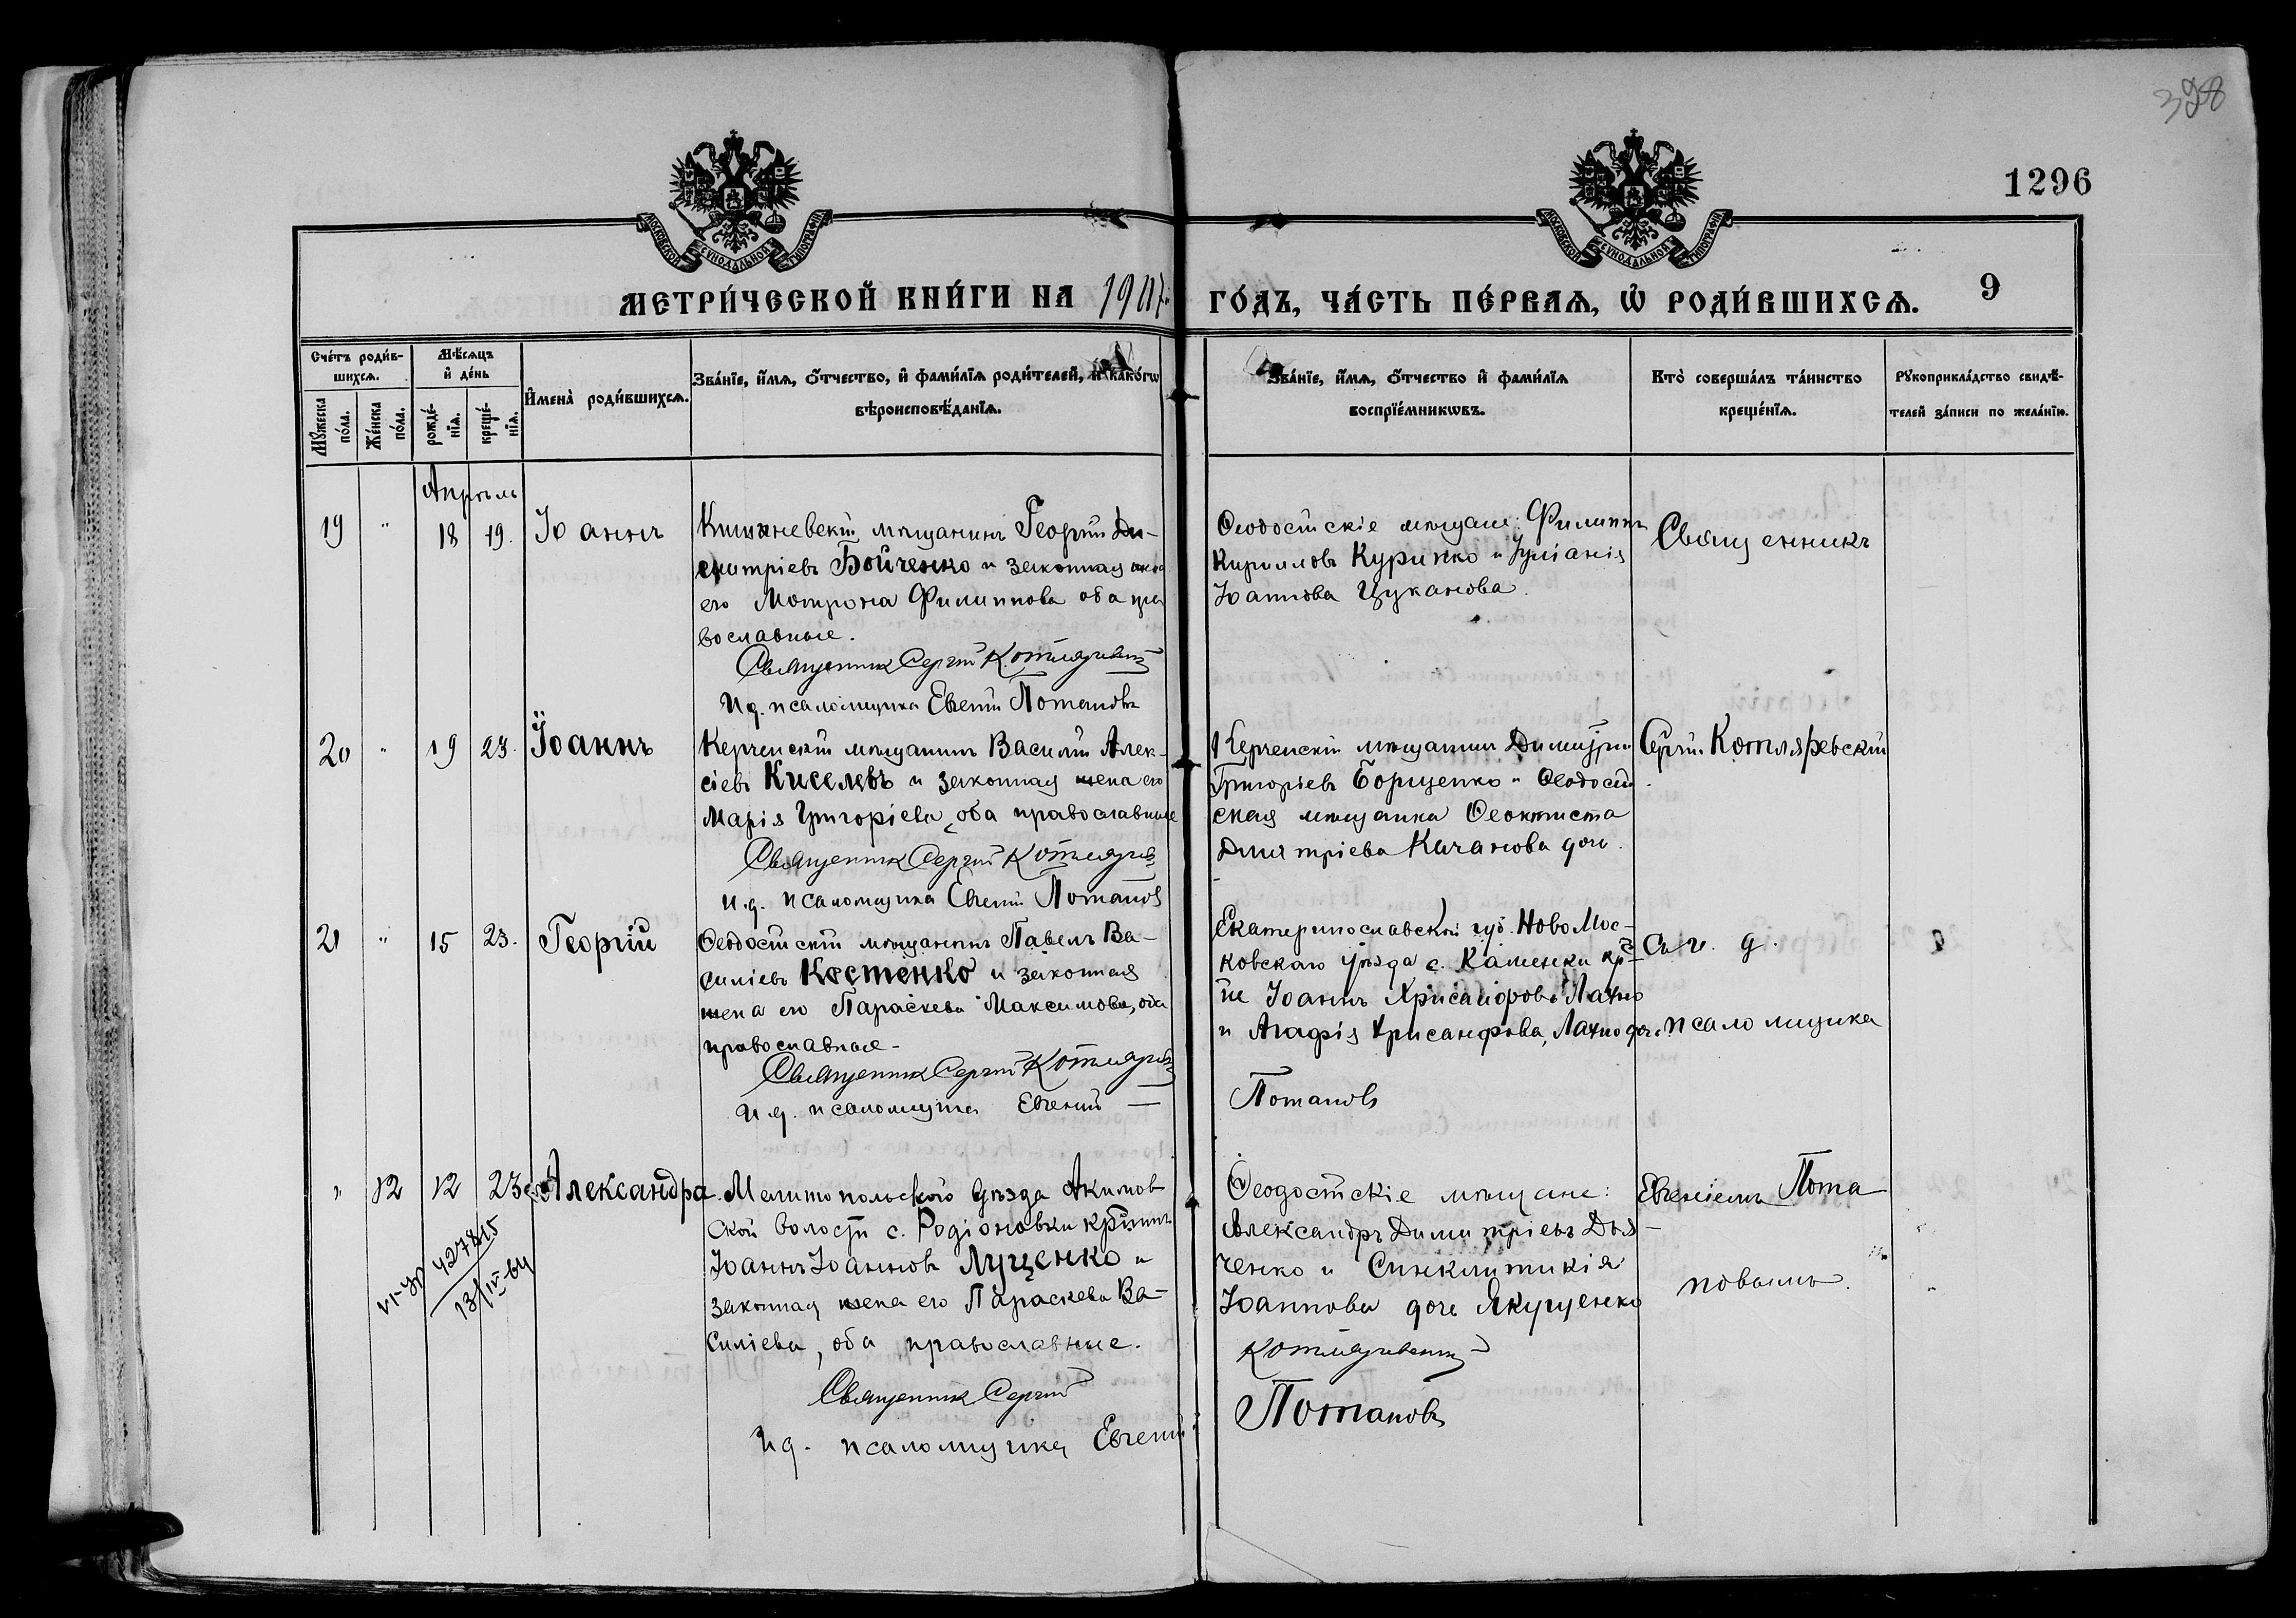 398
1296
МОСКОВСКОЙ СѴНОДАЛЬНОЙ ТИПОГРАФІИ
МОСКОВСКОЙ СѴНОДАЛЬНОЙ ТИПОГРАФІИ
МЕТРИ́ЧЕСКОЙ КНИ́ГИ НА 1907 ГО́ДЪ, ЧА́СТЬ ПЕ́РВАѦ, Ѽ РОДИ́ВШИХСѦ. 9
Сче́тъ роди́в-
шихсѧ.
Мѣ́сѧцъ
и҆ де́нь
Мꙋ́жеска
по́ла.
Же́нска
по́ла.
рожде́-
нїѧ.
креще́-
нїѧ.
И҆мена̀ роди́вшихсѧ.
Зва́нїе, и҆́мѧ, ѻ҆́тчество, и҆ фами́лїѧ роди́телей, и҆ како́гѡ
вѣроисповѣ́данїѧ.
Зва́нїе, и҆́мѧ, ѻ҆́тчество и҆ фами́лїѧ
воспрїе́мникѡвъ.
Кто̀ соверша́лъ та́инство
креще́нїѧ.
Рꙋкоприкла́дство свидѣ́-
телей за́писи по жела́нїю.
Апрѣль
19 " 18 19. Іоаннъ
Кишиневскій мѣщанинъ Георгій Ди-
митріевъ Бойченко и законная жена
его Мотрона Филиппова оба пра
вославные.
Священник Сергій Котляревскій
И д. псаломщика Евгеній Потаповъ
Ѳеодосійскіе мѣщане: Филиппъ
Кирилловъ Куринко и Іуліанія
Іоаннова Цуканова.
Священникъ
20 " 19 23. Іоаннъ
Керченскій мѣщанинъ Василій Алек-
сіевъ Киселевъ и законная жена его
Марія Григоріева, оба православные
Священник Сергій Котляревскій
и.д. псаломщика Евгеній Потаповъ
Керченскій мѣщанинъ Димитрій
Григоріевъ Борщенко и Ѳеодосій
ская мѣщанка Ѳеоктиста
Димитріева Качанова дочь.
Сергій Котляревскій
21 " 15 23. Георгій
Ѳеодосійскій мѣщанинъ Павелъ Ва-
силіевъ Костенко и законная
жена его Параскева Максимова, оба
православные-
Священник Сергій Котляревскій
И д. псаломщика Евгеній —
Екатеринославской губ. Ново Мос-
ковскаго уѣзда с. Каменки кр-
не Іоаннъ Хрисанфовъ Лахно
и Агафія Хрисанфова, Лахно дочь.
Потаповъ
Съ и. д.
псаломщика
" 12 12 23 Александра
427815
13/IV-64
Мелитопольскаго уѣзда Акимов
ской волости с. Родіоновки кр-нинъ
Іоаннъ Іоанновъ Луценко и
законная жена его Параскева Ва-
силіева, оба православные.
Священник Сергій
И д. псаломщика Евгеній
Ѳеодосійскіе мѣщане:
Александръ Димитріевъ Дья-
ченко и Синклитикія
Іоаннова дочь Якущенко
Котляревскій
Потаповъ
Евгеніемъ Пота
повымъ.